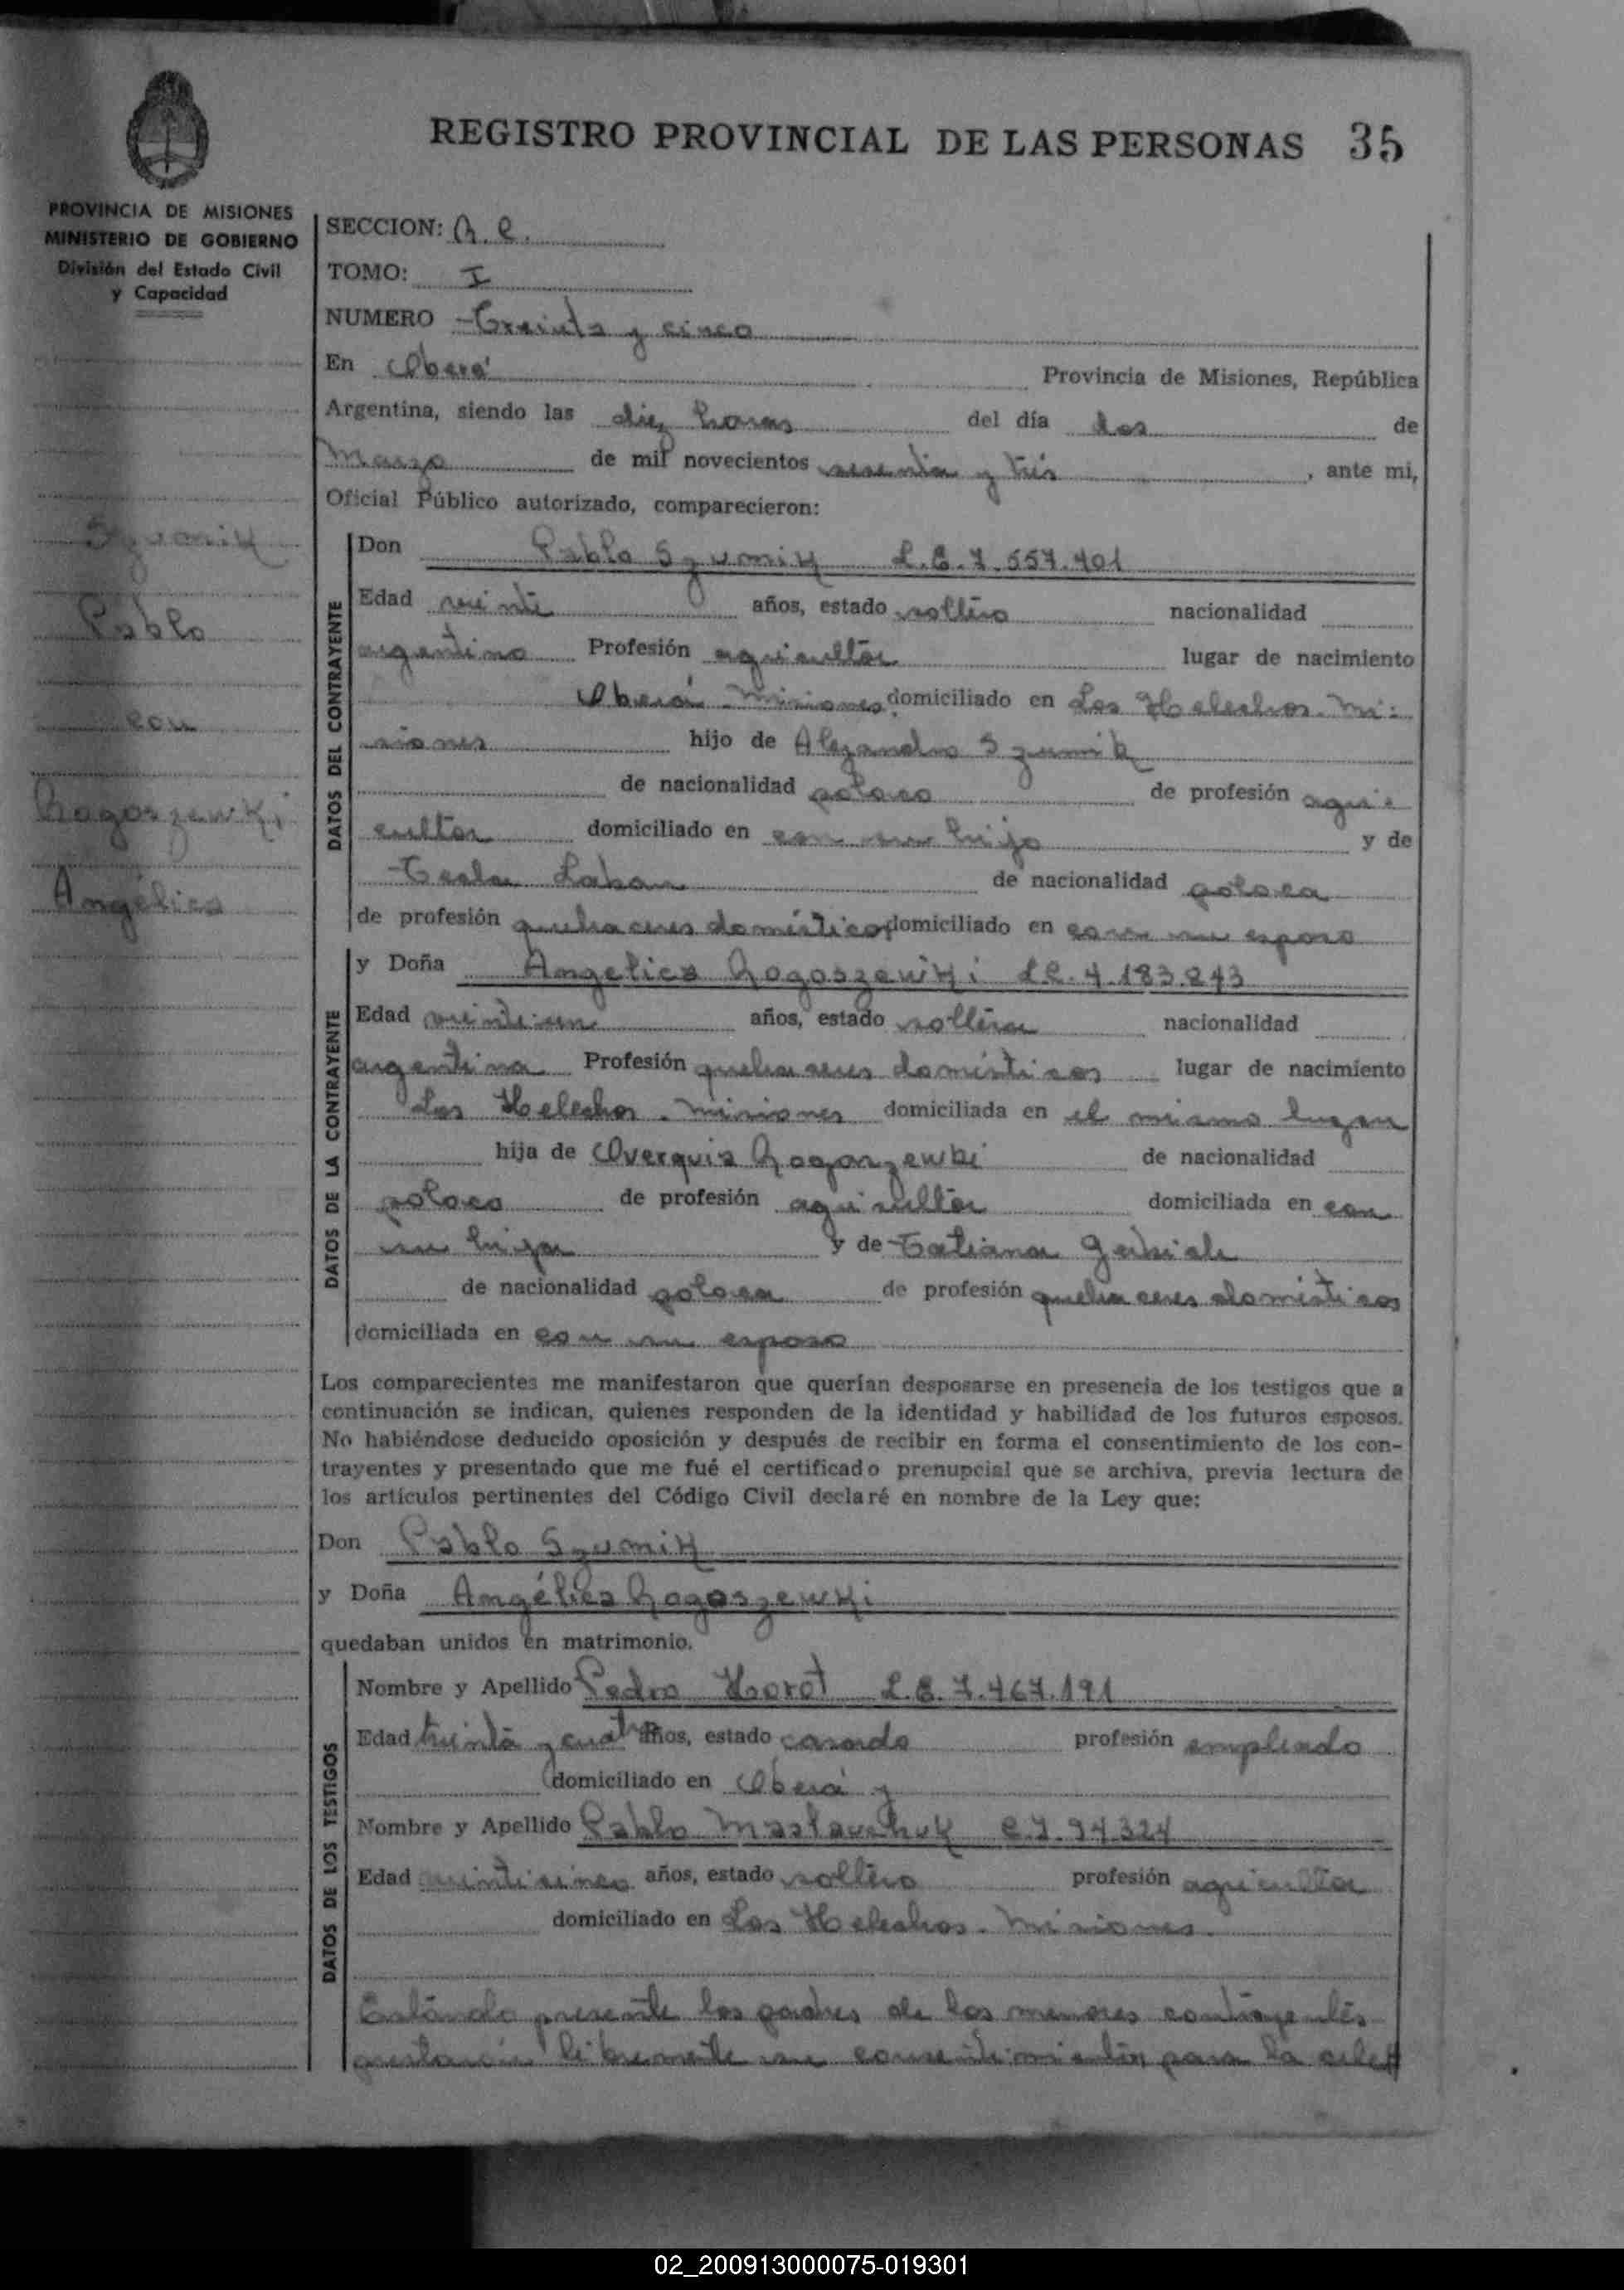 REGISTRO PROVINCIAL DE LAS PERSONAS 35
PROVINCIA DE MISIONES
MINISTERIO DE GOBIERNO
División del Estado Civil
y Capacidad
Szumik
Pablo
con
Rogoszewki
Angélica
SECCION:
TOMO: I
NUMERO Treinta y cinco
En Oberá Provincia de Misiones, República
Argentina, siendo las diez horas del día dos de
Marzo de mil novecientos sesenta y tres, ante mi,
Oficial Público autorizado, comparecieron:
DATOS DEL CONTRAYENTE
Don Pablo Szumik L.E. 7.557.401
Edad veinte años, estado soltero nacionalidad
argentino Profesión agricultor lugar de nacimiento
Oberá - Misiones domiciliado en Los Helechos - Mi-
siones hijo de Alejandro Szumik
de nacionalidad polaco de profesión agri-
cultor domiciliado en con su hijo y de
Tecla Laban de nacionalidad polaca
de profesión quehaceres domésticos domiciliado en con su esposo
DATOS DE LA CONTRAYENTE
y Doña Angelica Rogoszewki L.C. 4.183.243
Edad veintiun años, estado soltera nacionalidad
argentina Profesión quehaceres domésticos lugar de nacimiento
Los Helechos - Misiones domiciliada en el mismo lugar
hija de Rogoszewki de nacionalidad
polaco de profesión agricultor domiciliada en con
su hija y de Tatiana
de nacionalidad polaca de profesión quehaceres domésticos
domiciliada en con su esposo
Los comparecientes me manifestaron que querían desposarse en presencia de los testigos que a
continuación se indican, quienes responden de la identidad y habilidad de los futuros esposos.
No habiéndose deducido oposición y después de recibir en forma el consentimiento de los con-
trayentes y presentado que me fué el certificado prenupcial que se archiva, previa lectura de
los artículos pertinentes del Código Civil declaré en nombre de la Ley que:
Don Pablo Szumik
y Doña Angélica Rogoszewki
quedaban unidos en matrimonio.
DATOS DE LOS TESTIGOS
Nombre y Apellido Pedro Horot L.E. 7.467.191
Edad treinta y cuatro años, estado casado profesión empleado
domiciliado en Oberá y
Nombre y Apellido Pablo Maslauchuk C.I. 94.324
Edad veinticinco años, estado soltero profesión agricultor
domiciliado en Los Helechos - Misiones
Estando presente los padres de los menores contrayentes
prestaron libremente su consentimiento para la cele
02_200913000075-019301